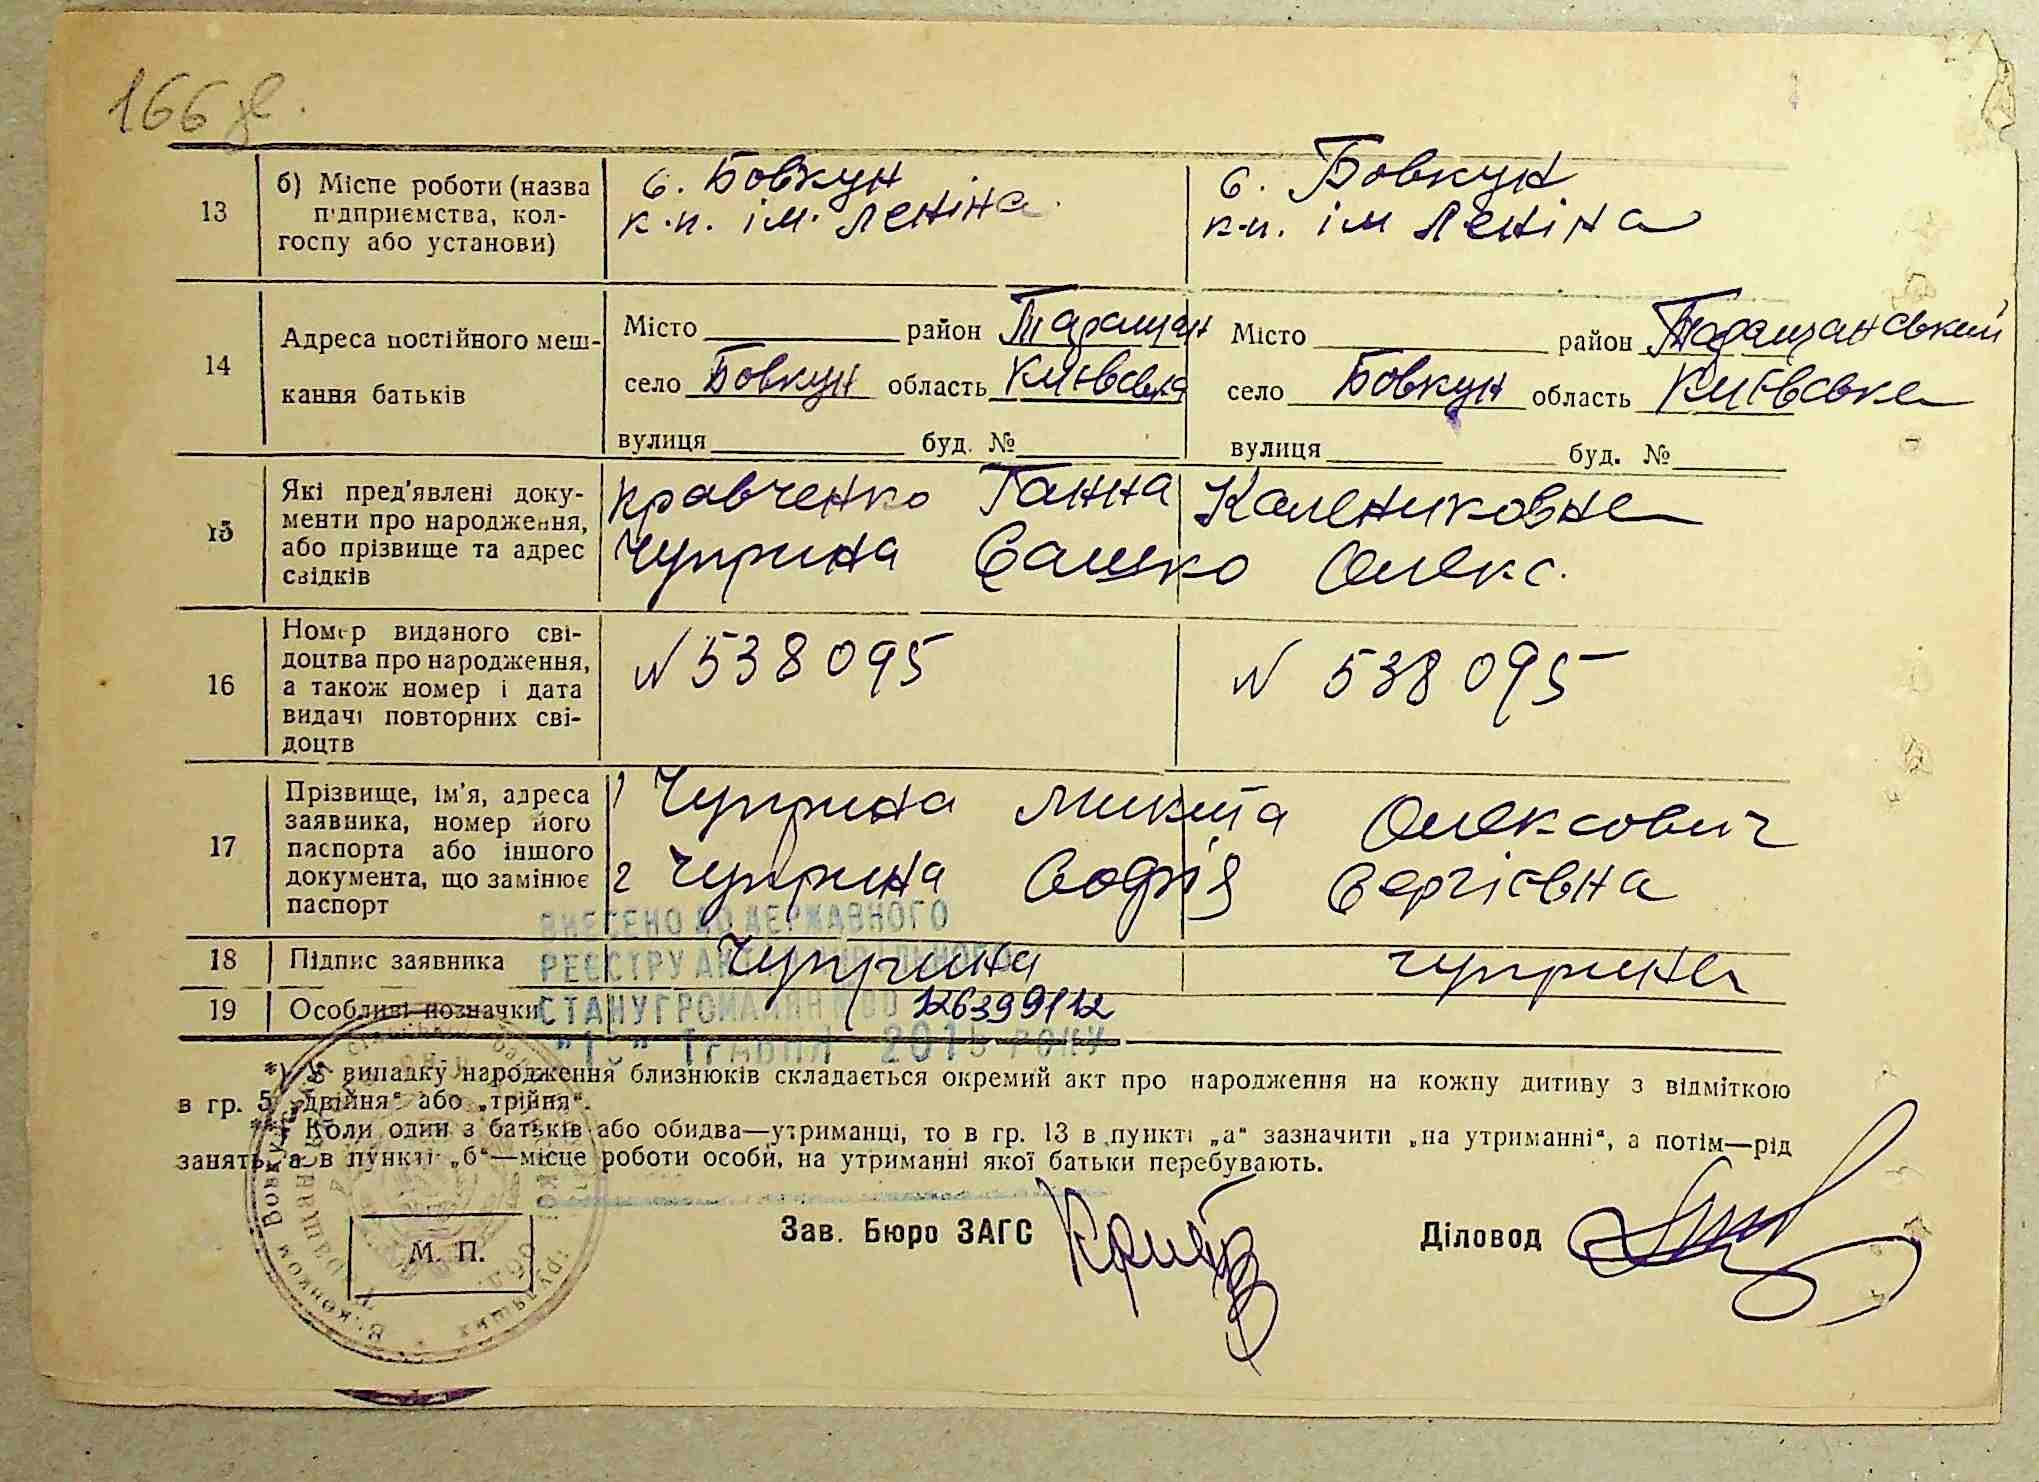 166 
13
б) Місце роботи (назва
підприємства, кол-
госпу або установи)
с. Бовкун
к.п. ім. Леніна.
с. Бовкун
к.п. ім Леніна
14
Адреса постійного меш-
кання батьків
Місто район Таращан
село Бовкун область Київська
вулиця буд. №
Місто район Таращанський
село Бовкун область Київська
вулиця буд. №
15
Які пред'явлені доку-
менти про народження,
або прізвище та адрес
свідків
Кравченко Ганна Калениковна
Чуприна Сашко Олекс.
16
Номер виданого сві-
доцтва про народження,
а також номер і дата
видачі повторних сві-
доцтв
N 538095
N 538095
17
Прізвище, ім'я, адреса
заявника, номер його
паспорта або іншого
документа, що замінює
паспорт
1 Чуприна Микита Олексович
2 Чуприна Софія Сергієвна
ВНЕСЕНО ДО ДЕРЖАВНОГО
РЕЄСТРУ АКТІВ ЦИВІЛЬНОГО
СТАНУ ГРОМАДЯН
ТРАВНЯ РОКУ
18
Підпис заявника
Чуприна
Чуприна
19
Особливі позначки
12639912
*) В випадку народження близнюків складається окремий акт про народження на кожну дитину з відміткою
в гр. 5 „двійня“ або „трійня“.
**) Коли один з батьків або обидва—утриманці, то в гр. 13 в пункті „а“ зазначити „на утриманні“, а потім—рід
занять, а в пункті „б“—місце роботи особи, на утриманні якої батьки перебувають.
М. П.
Зав. Бюро ЗАГС
Діловод